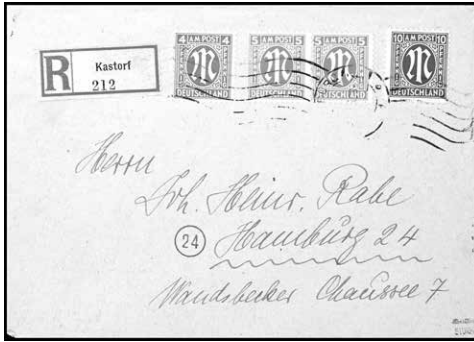 R Kastorf
212
4 AM POST 4 DEUTSCHLAND
5 AM POST 5 DEUTSCHLAND
5 AM POST 5 DEUTSCHLAND
10 AM POST 10 DEUTSCHLAND
Herrn
Joh. Heinr. Rabe
24 Hamburg 24
Wandsbecker Chaussee 7